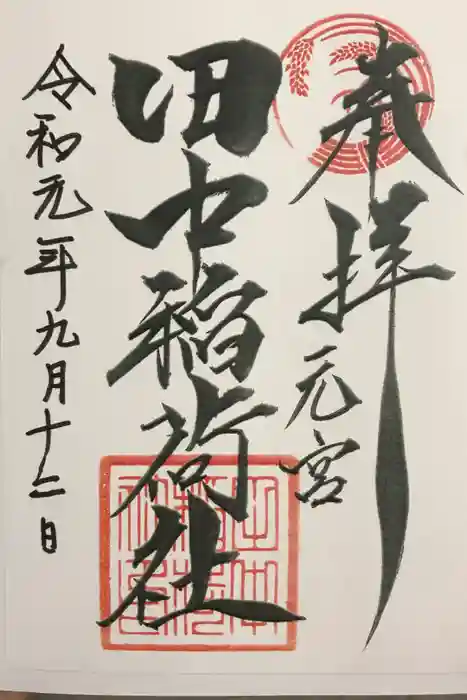 奉拝
元宮
田中稲荷社
令和元年九月十二日